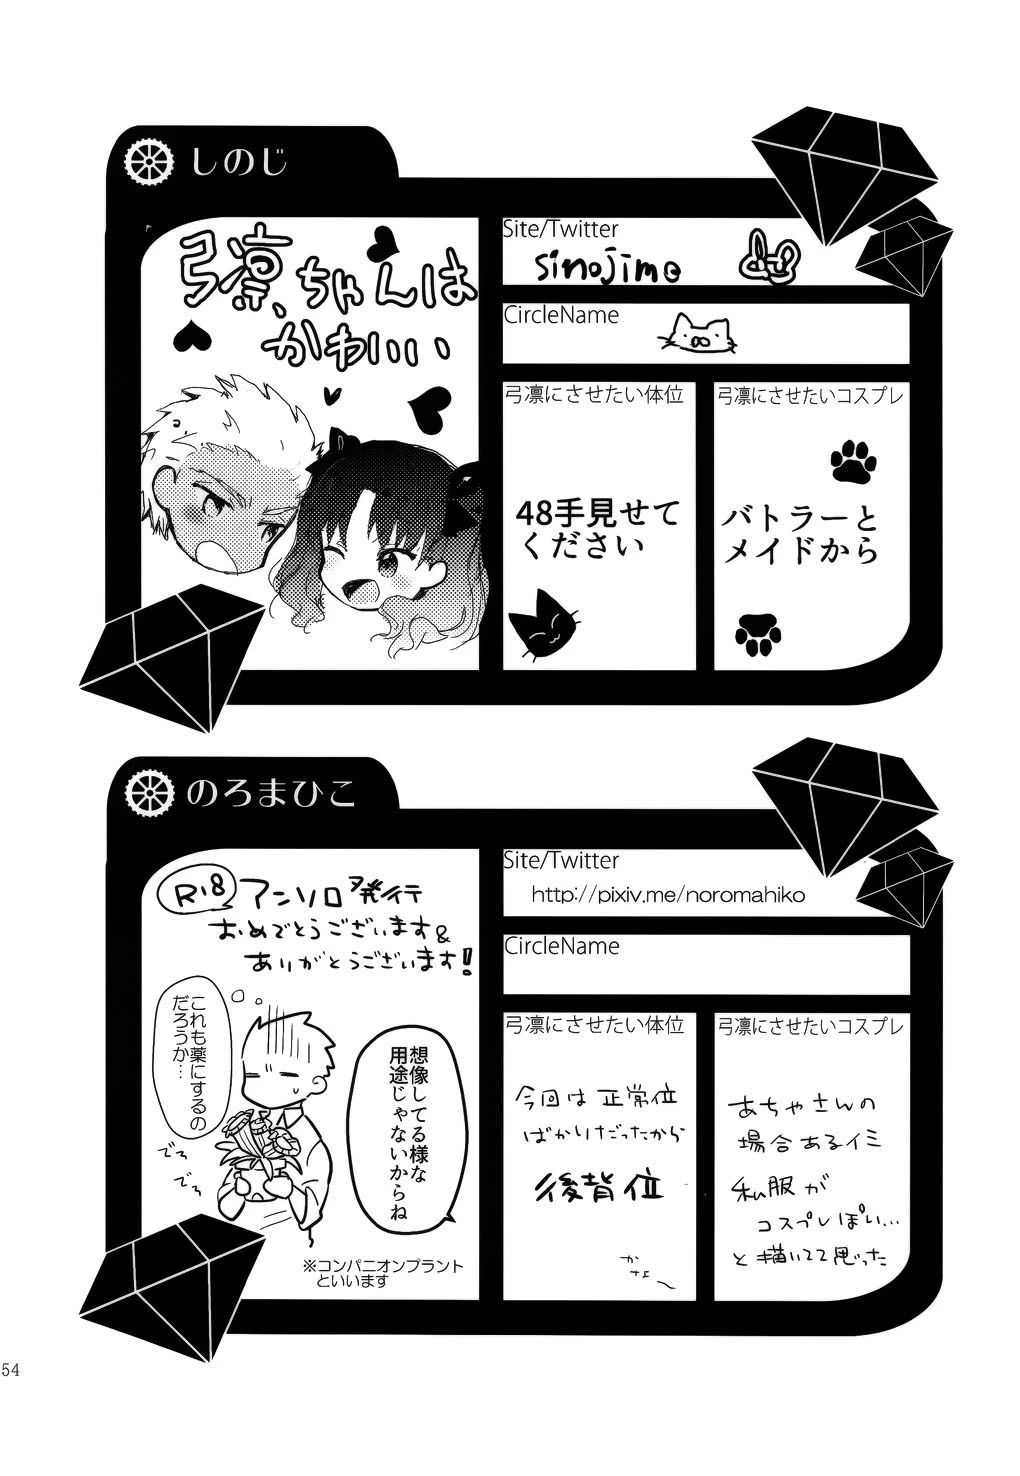 しのじ
弓凛、ちゃんは
かわいい
Site/Twitter
sinojimo
CircleName
弓凛にさせたい体位
48手見せて
ください
弓凛にさせたいコスプレ
バトラーと
メイドから
のろまひこ
R18 アンソロ発行
おめでとうございます&
ありがとうございます!
これも薬にするの
だろうか…
でろ
でろ
想像してる様な
用途じゃないからね
※コンパニオンプラント
といいます
Site/Twitter
http://pixiv.me/noromahiko
CircleName
弓凛にさせたい体位
今回は正常位
ばかりだったから
後背位
かなー
弓凛にさせたいコスプレ
あちゃさんの
場合あるイミ
私服が
コスプレぽい…
と描いてて思った
54